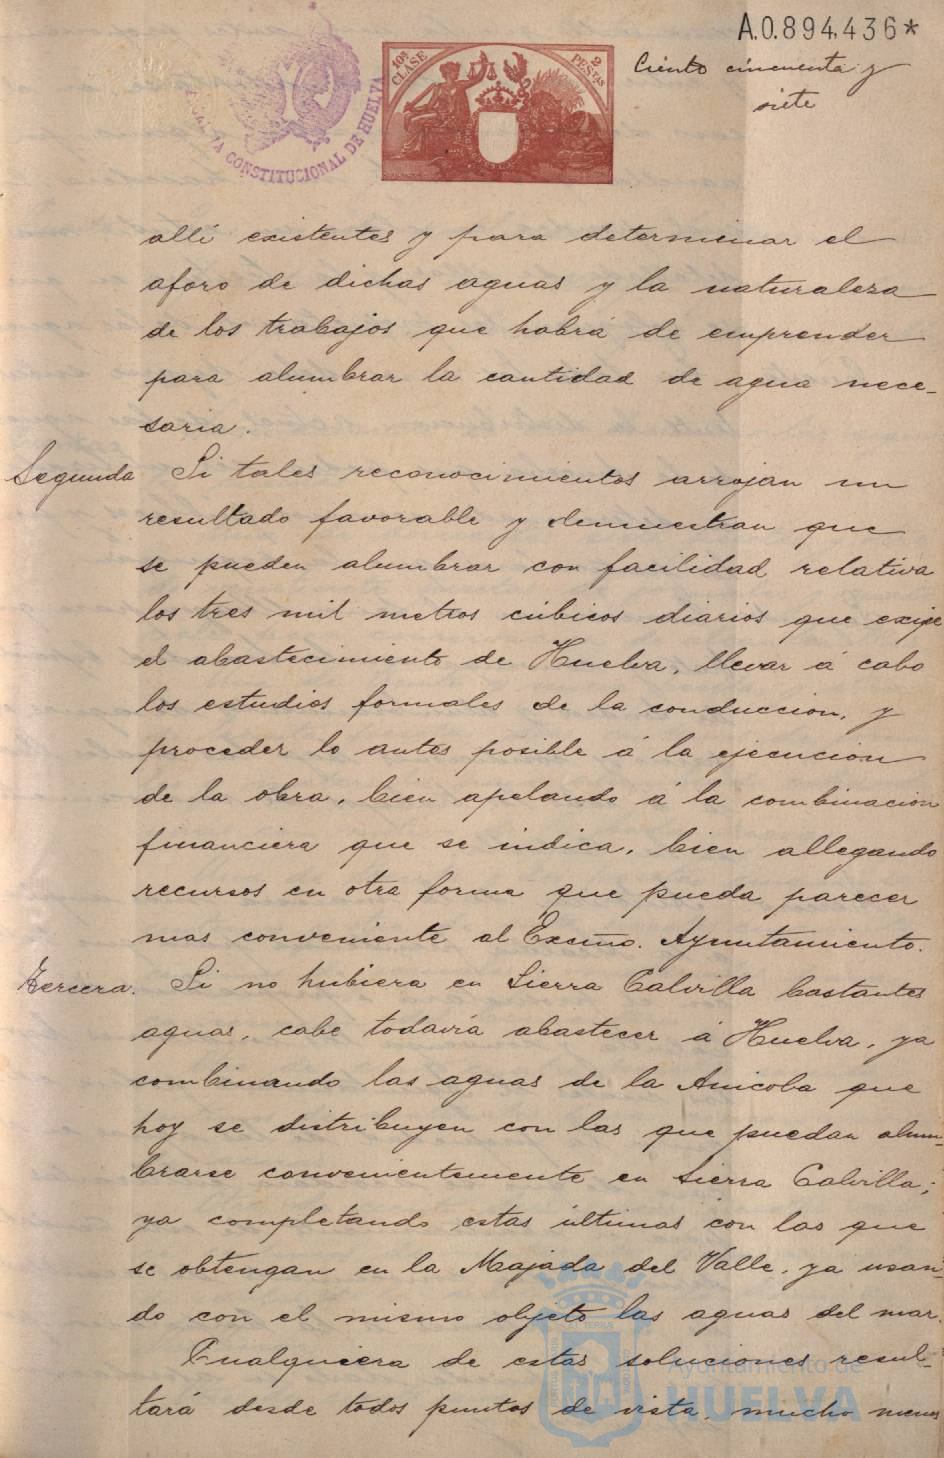 A.0.894,436*
Ciento cincuenta y
siete
10ª CLASE
2 PESTAS
CONSTITUCIONAL DE HUELVA
allí existentes y para determinar el
aforo de dichas aguas y la naturaleza
de los trabajos que habrá de emprender
para alumbrar la cantidad de agua nece-
saria.
Segunda Si tales reconocimientos arrojan un
resultado favorable y demuestran que
se pueden alumbrar con facilidad relativa
los tres mil metros cúbicos diarios que exije
el abastecimiento de Huelva, llevar á cabo
los estudios formales de la conduccion, y
proceder lo antes posible á la ejecucion
de la obra, bien apelando á la combinacion
financiera que se indica, bien allegando
recursos en otra forma que pueda parecer
mas conveniente al Excmo. Ayuntamiento.
Tercera. Si no hubiera en Sierra Calvilla bastantes
aguas, cabe todavía abastecer á Huelva, ya
combinando las aguas de la Anicoba que
hoy se distribuyen con las que puedan alum-
brarse convenientemente en Sierra Calvilla;
ya completando estas últimas con las que
se obtengan en la Majada del Valle, ya usan-
do con el mismo objeto las aguas del mar.
Cualquiera de estas soluciones resul-
tará desde todos puntos de vista, mucho menos
Ayuntamiento de
HUELVA